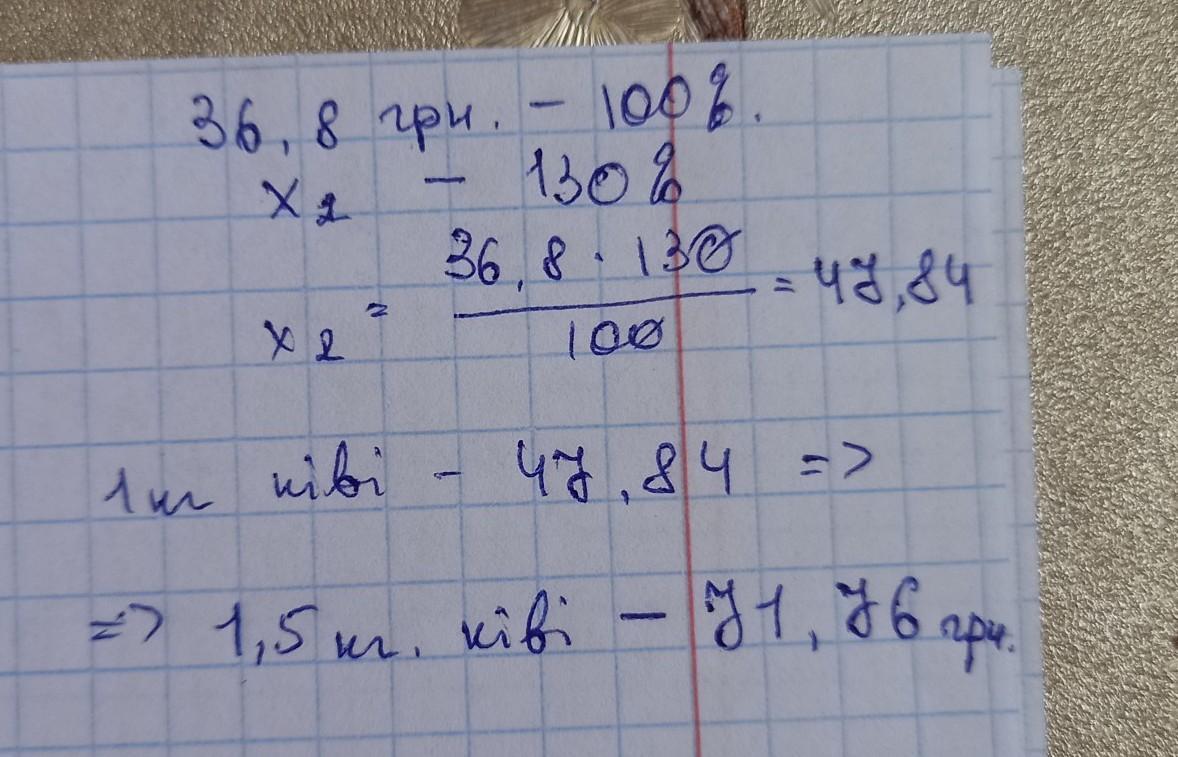 36,8 грн. - 100%.
x2 - 130%
x2 = 36,8 · 130 / 100 = 47,84
1 кг ківі - 47,84 =>
=> 1,5 кг. ківі - 71,76 грн.